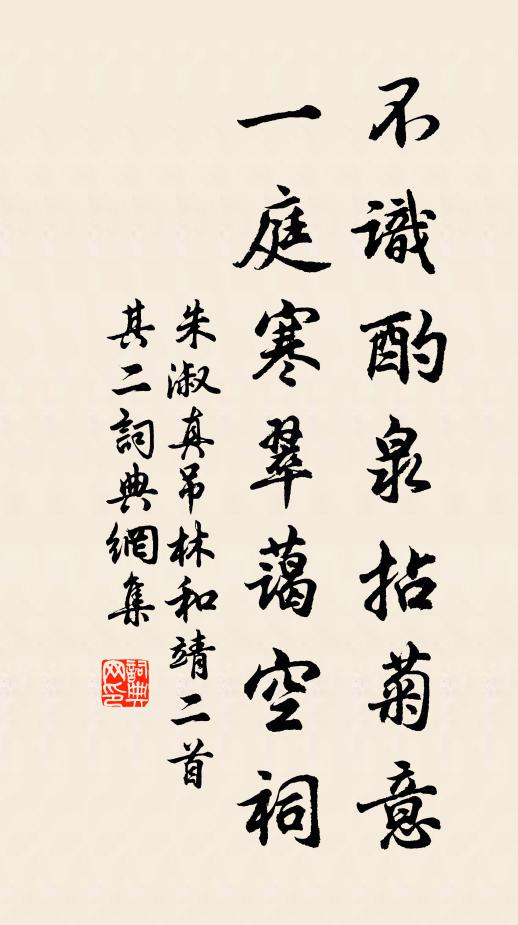 不識酌泉拈菊意
一庭寒翠藹空祠
朱淑真吊林和靖二首
其二詞典網集
詞典
网印